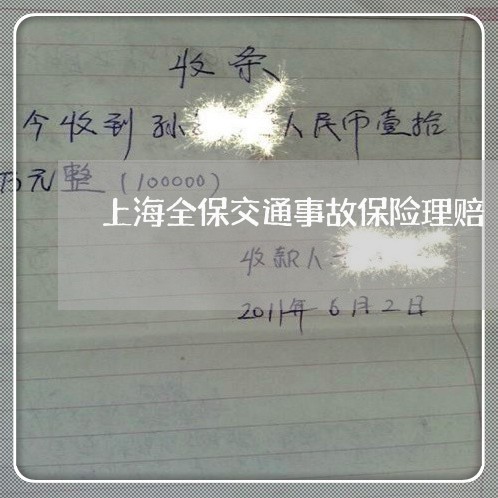 收条
今收到孙 人民币壹拾
万元整（100000）
上海全保交通事故保险理赔
收款人
2011年6月2日